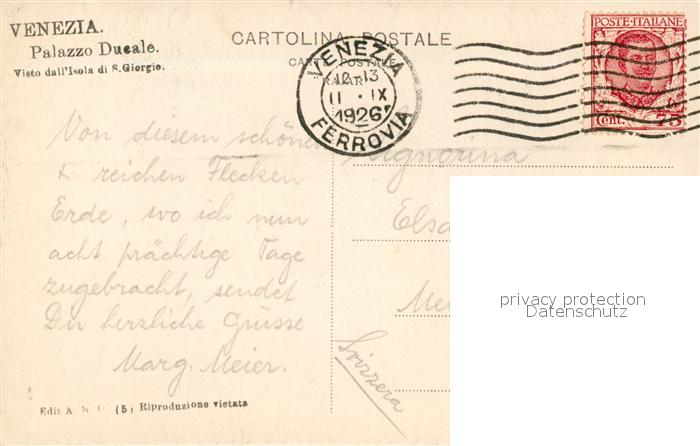 VENEZIA.
Palazzo Ducale.
Visto dall'Isola di S. Giorgio.
CARTOLINA POSTALE
CARTE POSTALE
VENEZIA
12-13
11 · IX
1926
FERROVIA
POSTE·ITALIANE
Cent. 75
Von diesem schönen
& reichen Flecken
Erde, wo ich nun
acht prächtige Tage
zugebracht, sendet
Dir herzliche Grüsse
Marg. Meier.
Signorina
Elsa
Mei
Svizzera
privacy protection
Datenschutz
Edit A (5) Riproduzione vietata